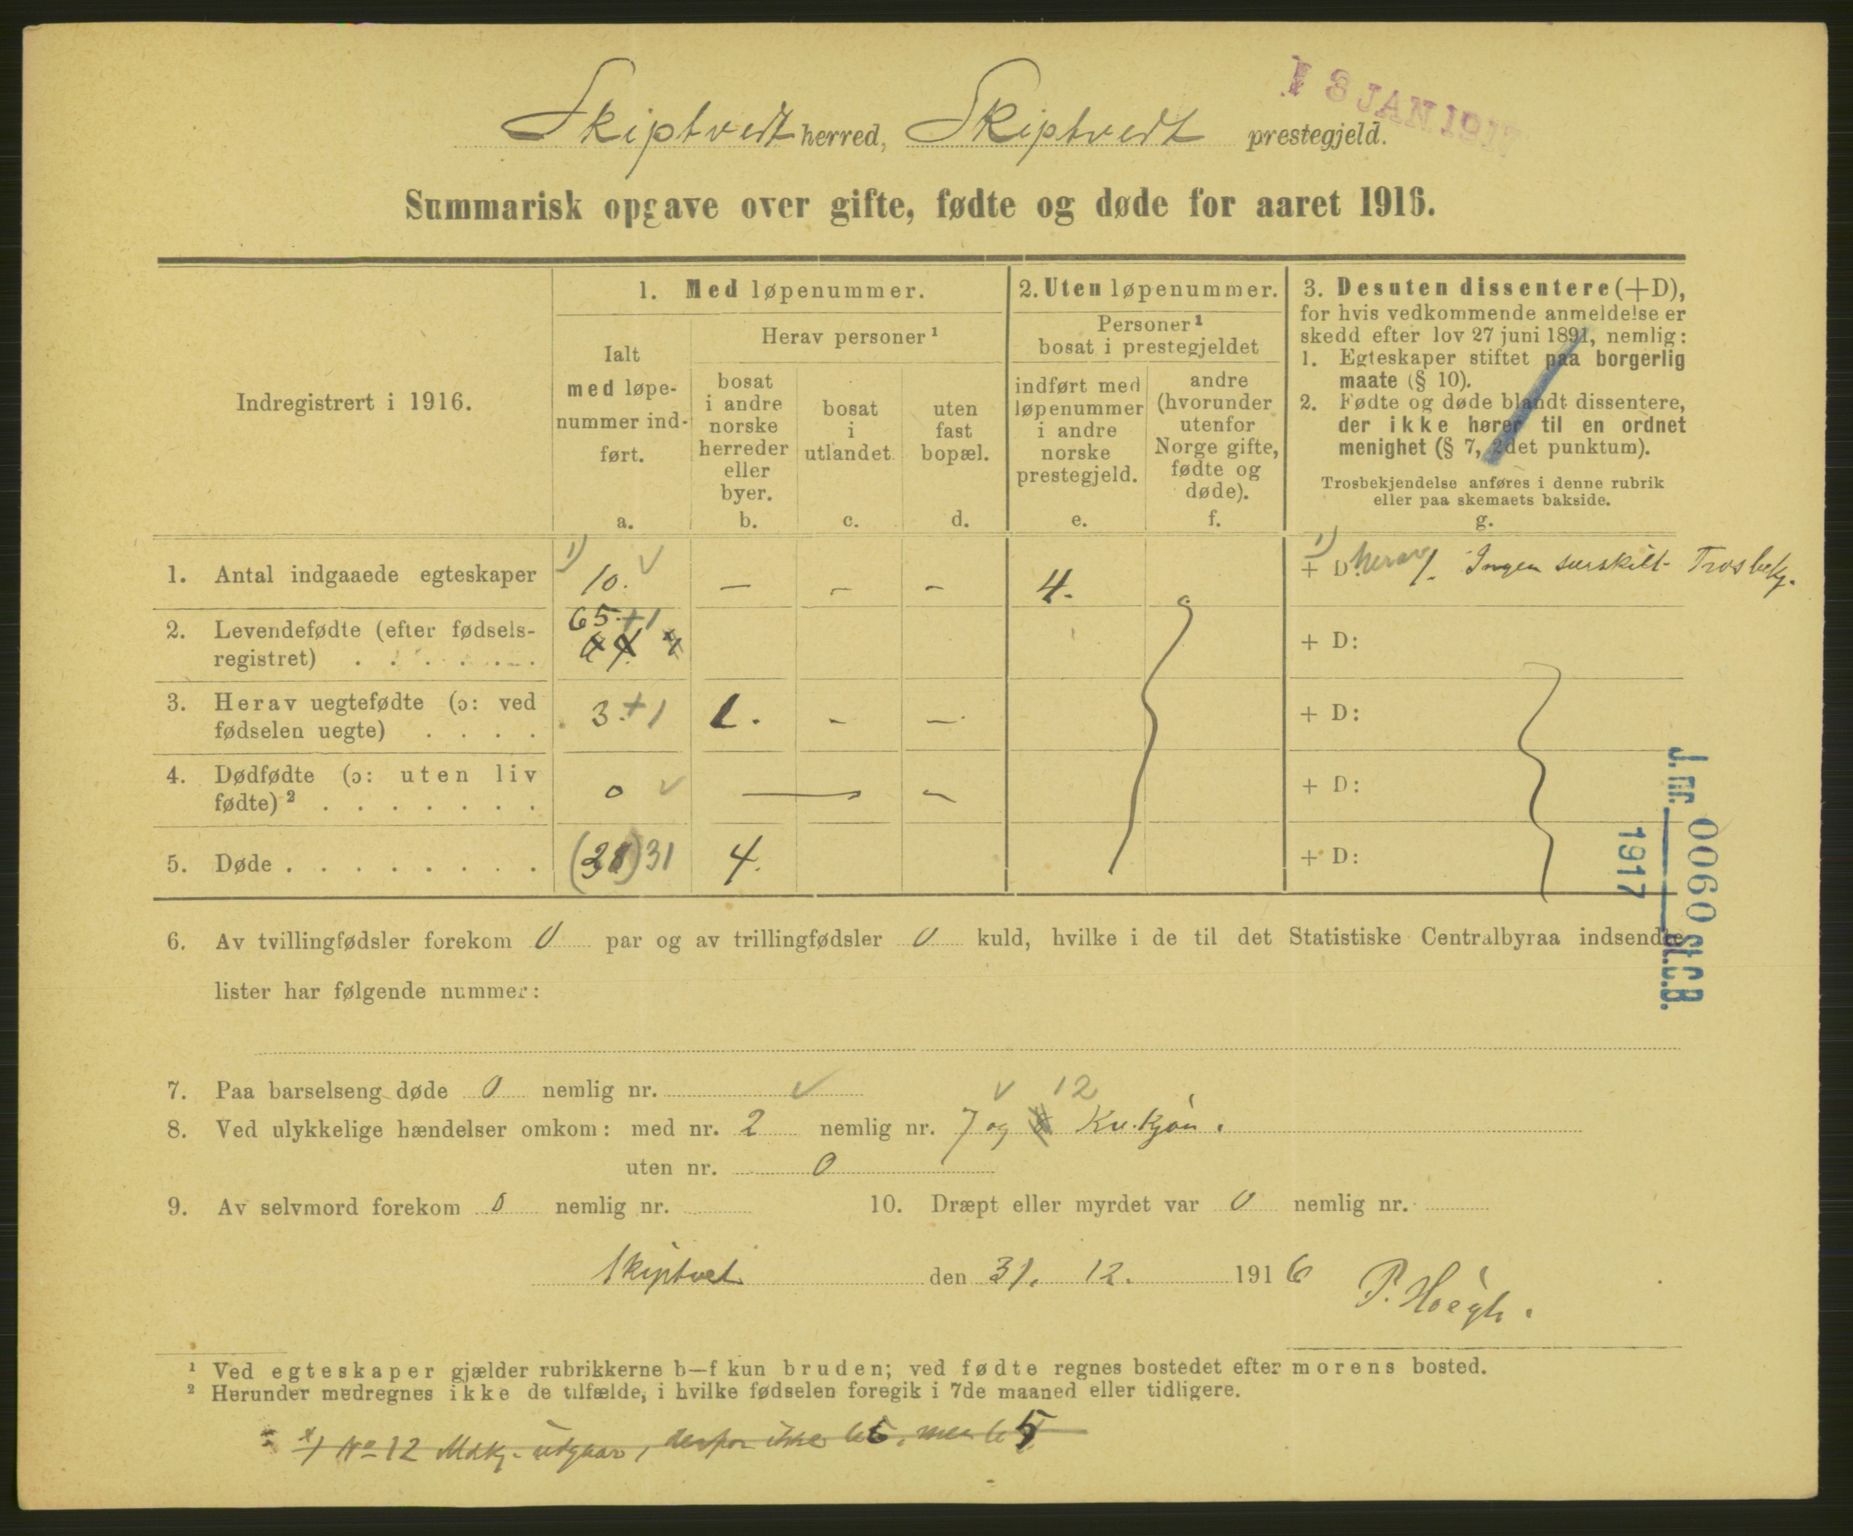 18 JAN 1917
Skiptvedt herred, Skiptvedt prestegjeld.
Summarisk opgave over gifte, fødte og døde for aaret 1916.
Indregistrert i 1916.
1. Med løpenummer.
Ialt
med løpe-
nummer ind-
ført.
a.
Herav personer¹
bosat
i andre
norske
herreder
eller
byer.
b.
bosat
i
utlandet.
c.
uten
fast
bopæl.
d.
2. Uten løpenummer.
Personer¹
bosat i prestegjeldet
indført med
løpenummer
i andre
norske
prestegjeld.
e.
andre
(hvorunder
utenfor
Norge gifte,
fødte og
døde).
f.
3. Desuten dissentere (+D),
for hvis vedkommende anmeldelse er
skedd efter lov 27 juni 1891, nemlig:
1. Egteskaper stiftet paa borgerlig
maate (§ 10).
2. Fødte og døde blandt dissentere,
der ikke hører til en ordnet
menighet (§ 7, 2det punktum).
Trosbekjendelse anføres i denne rubrik
eller paa skemaets bakside.
g.
1. Antal indgaaede egteskaper 1) 10. ✓ – – – 4. 1) + D: herav 1. Ingen særskilt Trosbekj.
2. Levendefødte (efter fødsels-
registret) . . . . . . 65 + 1 + D:
3. Herav uegtefødte (ɔ: ved
fødselen uegte) . . . . 3. + 1 1. – – + D:
4. Dødfødte (ɔ: uten liv
fødte)² . . . . . . . 0 ✓ — – + D:
5. Døde . . . . . . . . (28) 31 4. + D:
J. nr. 0060 St.C.B.
1917
6. Av tvillingfødsler forekom 0 par og av trillingfødsler 0 kuld, hvilke i de til det Statistiske Centralbyraa indsendte
lister har følgende nummer:
7. Paa barselseng døde 0 nemlig nr. ✓
✓ 12
8. Ved ulykkelige hændelser omkom: med nr. 2 nemlig nr. 7 og Kv.kjøn.
uten nr. 0
9. Av selvmord forekom 0 nemlig nr. 10. Dræpt eller myrdet var 0 nemlig nr.
Skiptvet den 31. 12. 1916
P. Høegh.
¹ Ved egteskaper gjælder rubrikkerne b–f kun bruden; ved fødte regnes bostedet efter morens bosted.
² Herunder medregnes ikke de tilfælde, i hvilke fødselen foregik i 7de maaned eller tidligere.
x) No 12 Mdkj. udgaar, derfor ikke 65, men 6